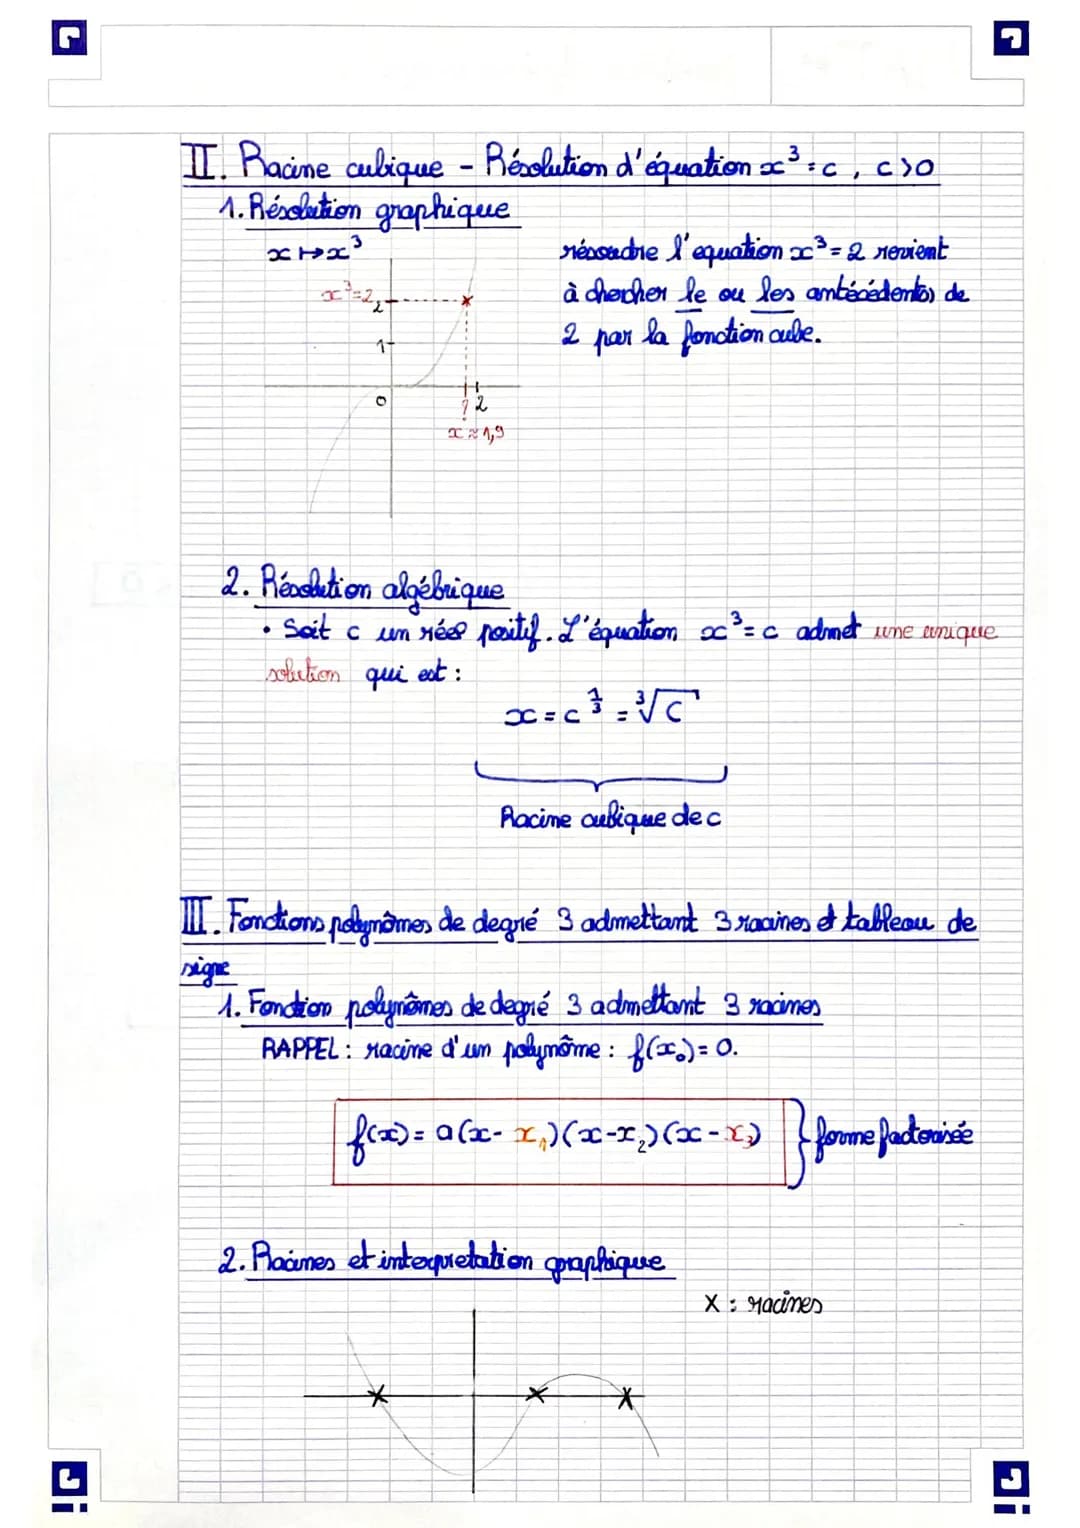 II. Racine cubique - Résolution d'équation x³ = c, c>0
1. Résolution graphique
x ↦ x³
résoudre l'equation x³ = 2 revient
x³=2
2
à chercher le ou les antécédent(s) de
1
2 par la fonction cube.
0
? 2
x ≈ 1,9
2. Résolution algébrique
• Soit c un réel positif. L'équation x³ = c admet une unique
solution qui est :
x = c^(1/3) = ³√c
Racine cubique de c
III. Fonctions polynômes de degré 3 admettant 3 racines et tableau de
signe
1. Fonction polynômes de degré 3 admettant 3 racines
RAPPEL : racine d'un polynôme : f(x₀) = 0.
f(x) = a(x - x₁)(x - x₂)(x - x₃) } forme factorisée
2. Racines et interpretation graphique
X : racines